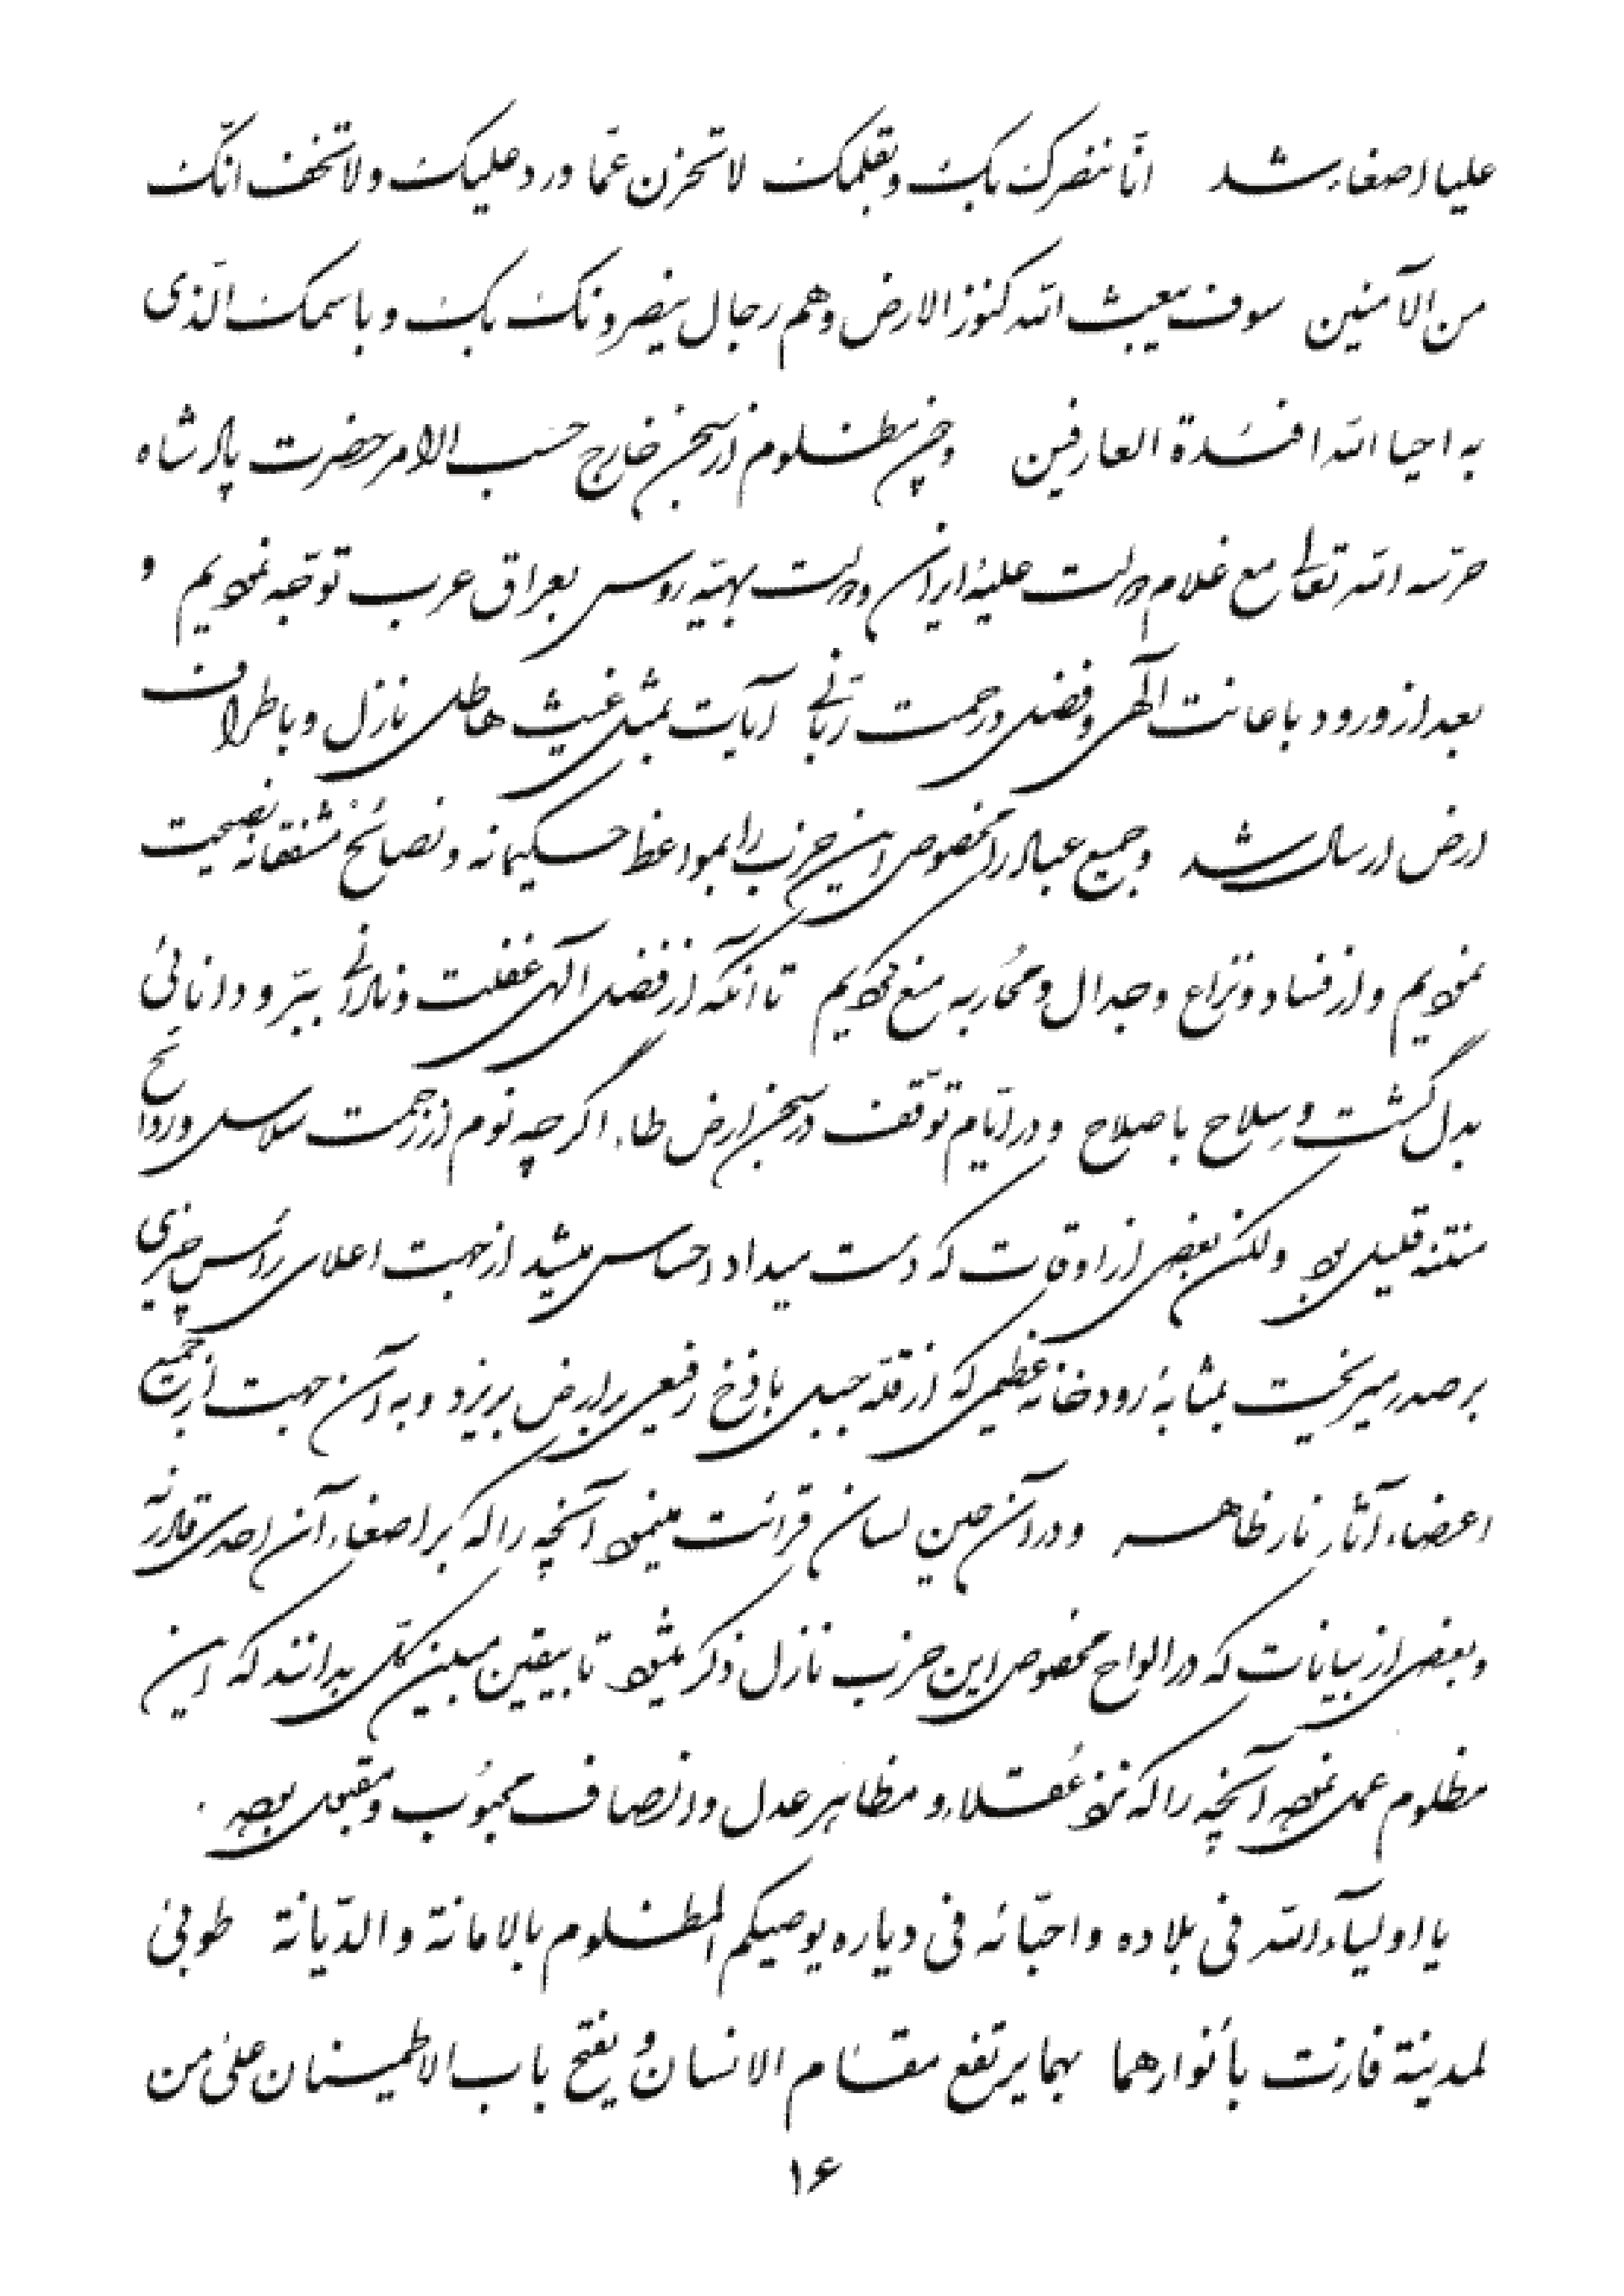 علیا اصغاء شد انّا ننصرک بک و بقلمک لا تحزن عمّا ورد علیک و لا تخف انّک
من الآمنین سوف یبعث الله کنوز الارض و هم رجال ینصرونک بک و باسمک الّذی
به احیا الله افئدة العارفین و چون مظلوم از سجن خارج حسب الامر حضرت پادشاه
حرّسه الله تعالی مع غلام دولت علیّهٔ ایران و دولت بهیّهٔ روس بعراق عرب توجّه نمودیم و
بعد از ورود باعانت الهی و فضل و رحمت ربّانی آیات بمثل غیث هاطل نازل و باطراف
ارض ارسال شد و جمیع عباد را مخصوص این حزب را بمواعظ حکیمانه و نصائح مشفقانه نصیحت
نمودیم و از فساد و نزاع و جدال و محاربه منع کردیم تا آنکه از فضل الهی غفلت و نادانی ببرّ و دانائی
بدل گشت و سلاح باصلاح و در ایّام توقّف در سجن ارض طاء اگر چه نوم از زحمت سلاسل و روائح
منتنه قلیل بود ولکن بعضی از اوقات که دست میداد احساس میشد از جهت اعلای رأس چیزی
بر صدر میریخت بمثابهٔ رودخانهٔ عظیمی که از قلّهٔ جبل باذخ رفیعی بر ارض بریزد و به آن جهت از جمیع
اعضاء آثار نار ظاهر و در آن حین لسان قرائت مینمود آنچه را که بر اصغاء آن احدی قادر نه
و بعضی از بیانات که در الواح مخصوص این حزب نازل ذکر میشود تا بیقین مبین کل بدانند که این
مظلوم عمل نموده آنچه را که نزد عُقلاء و مظاهر عدل و انصاف محبوُب و مقبول بوده .
یا اولیآء الله فی بلاده و احبّائه فی دیاره یوصیکم المظلوم بالامانة و الدّیانة طوبی
لمدینة فازت بأنوارهما بهما یرتفع مقام الانسان و یفتح باب الاطمینان علی من
۱۶